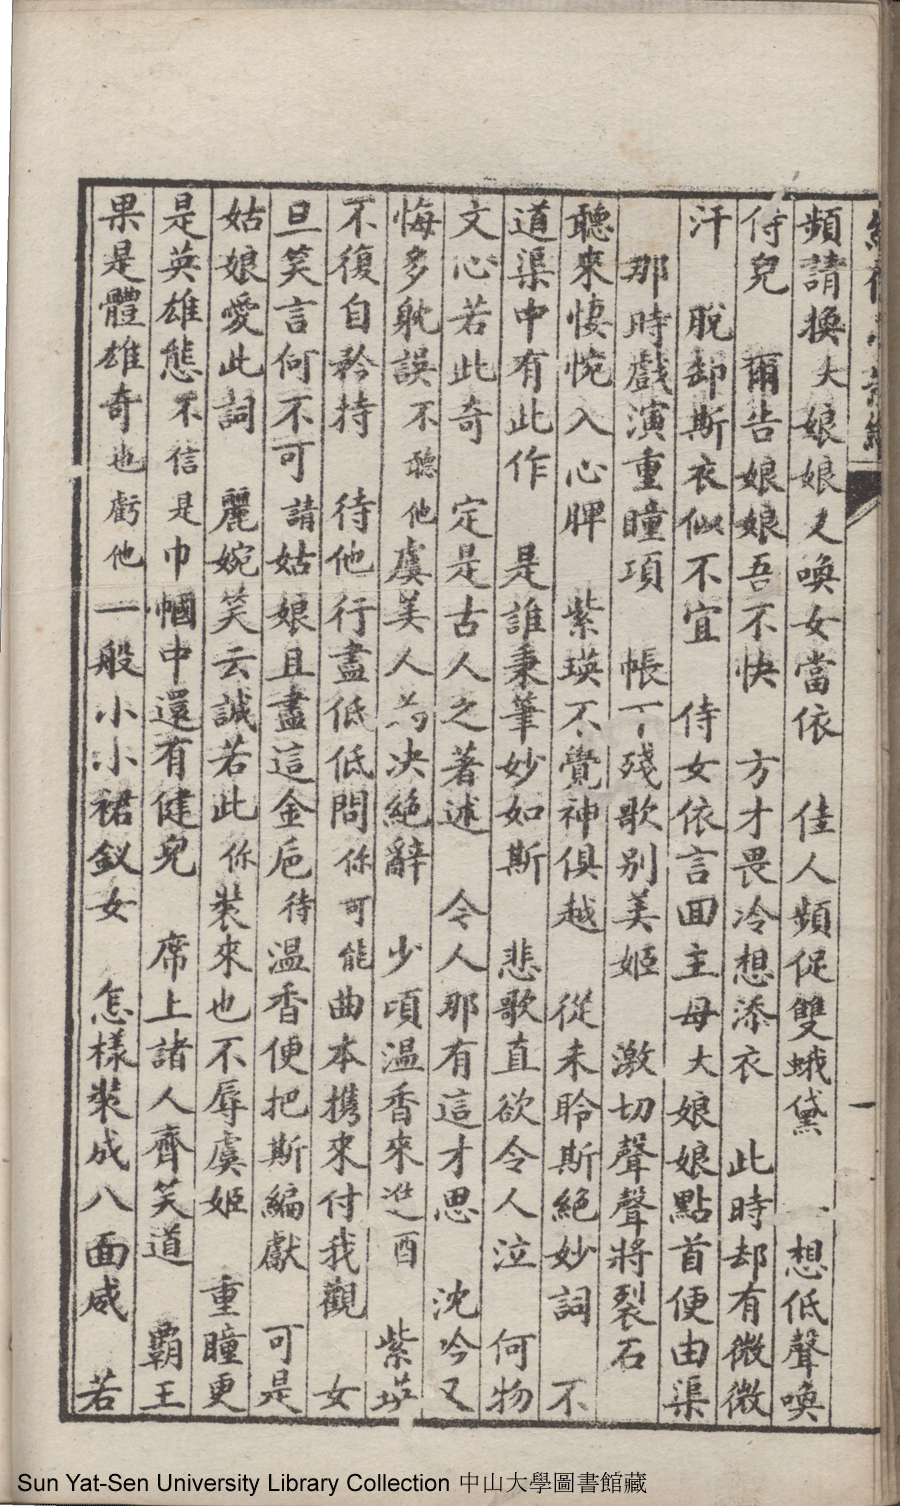 頻請換大娘娘又喚女當依　佳人頻促雙蛾黛　一想低聲喚
侍兒　爾告娘娘吾不快　方才畏冷想添衣　此時却有微微
汗　脫却斯衣似不宜　侍女依言回主母大娘娘點首便由渠
那時戲演重瞳項　帳下殘歌别美姬　激切聲聲將裂石
聽來悽惋入心脾　紫瑛不覺神俱越　從未聆斯絕妙詞　不
道渠中有此作　是誰秉筆妙如斯　悲歌直欲令人泣　何物
文心若此奇　定是古人之著述　令人那有這才思　沈吟又
悔多躭誤不聽他虞美人為决絕辭　少頃温香來近酉　紫瑛
不復自矜持　待他行盡低低問你可能曲本携來付我觀　女
旦笑言何不可請姑娘且盡這金巵待温香便把斯編獻　可是
姑娘愛此詞　麗婉笑云誠若此你裝來也不辱虞姬　重瞳更
是英雄態不信是巾幗中還有健兒　席上諸人齊笑道　霸王
果是體雄奇也虧他一般小小裙釵女　怎樣裝成八面威　若
一
Sun Yat-Sen University Library Collection 中山大學圖書館藏